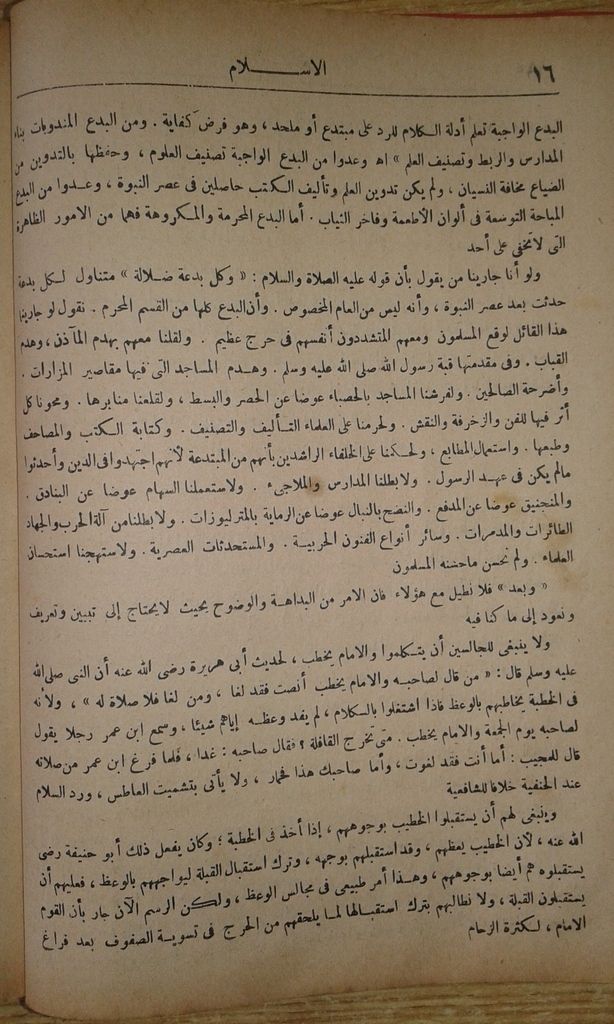 ١٦
الاســـلام
البدع الواجبة تعلم أدلة الكلام للرد على مبتدع أو ملحد ، وهو فرض كفاية . ومن البدع المندوبات بناء
المدارس والربط وتصنيف العلم » اه وعدوا من البدع الواجبة تصنيف العلوم ، وحفظها بالتدوين من
الضياع مخافة النسيان ، ولم يكن تدوين العلم وتأليف الكتب حاصلين فى عصر النبوة ، وعدوا من البدع
المباحة التوسعة فى ألوان الأطعمة وفاخر الثياب . أما البدع المحرمة والمكروهة فهما من الامور الظاهرة
التى لاتخفى على أحد
ولو أنا جارينا من يقول بأن قوله عليه الصلاة والسلام : « وكل بدعة ضلالة » متناول لكل بدعة
حدثت بعد عصر النبوة ، وأنه ليس من العام المخصوص . وأن البدع كلها من القسم المحرم . نقول لو جارينا
هذا القائل لوقع المسلمون ومعهم المتشددون أنفسهم فى حرج عظيم . ولقلنا معهم بهدم المآذن ، وهدم
القباب . وفى مقدمتها قبة رسول الله صلى الله عليه وسلم . وهدم المساجد التى فيها مقاصير المزارات .
وأضرحة الصالحين . ولفرشنا المساجد بالحصباء عوضا عن الحصر والبسط ، ولقلعنا منابرها . ومحونا كل
أثر فيها للفن والزخرفة والنقش . ولحرمنا على العلماء التأليف والتصنيف . وكتابة الكتب والمصاحف
وطبعها . واستعمال المطابع ، ولحكمنا على الخلفاء الراشدين بأنهم من المبتدعة لأنهم اجتهدوا فى الدين وأحدثوا
مالم يكن فى عهد الرسول . ولابطلنا المدارس والملاجىء . ولاستعملنا السهام عوضا عن البنادق .
والمنجنيق عوضا عن المدفع . والنضح بالنبال عوضا عن الرماية بالمترليوزات . ولابطلنا من آلة الحرب والجهاد
الطائرات والمدمرات . وسائر أنواع الفنون الحربية . والمستحدثات العصرية . ولاستهجنا استحسان
العلماء . ولم نحسن ماحسنه المسلمون
« وبعد » فلا نطيل مع هؤلاء فان الامر من البداهة والوضوح بحيث لايحتاج إلى تبيين وتعريف
ونعود إلى ما كنا فيه
ولا ينبغى للجالسين أن يتكلموا والامام يخطب ، لحديث أبى هريرة رضى الله عنه أن النبى صلى الله
عليه وسلم قال : « من قال لصاحبه والامام يخطب أنصت فقد لغا ، ومن لغا فلا صلاة له » ، ولأنه
فى الخطبة يخاطبهم بالوعظ فاذا اشتغلوا بالكلام ، لم يفد وعظه إياهم شيئا ، وسمع ابن عمر رجلا يقول
لصاحبه يوم الجمعة والامام يخطب . متى تخرج القافلة ؟ فقال صاحبه : غدا ، فلما فرغ ابن عمر من صلاته
قال للمجيب : أما أنت فقد لغوت ، وأما صاحبك هذا فحمار ، ولا يأتى بتشميت العاطس ، ورد السلام
عند الحنفية خلافا للشافعية
وينبغى لهم أن يستقبلوا الخطيب بوجوههم ، إذا أخذ فى الخطبة ؛ وكان يفعل ذلك أبو حنيفة رضى
الله عنه ، لأن الخطيب يعظهم ، وقد استقبلهم بوجهه ، وترك استقبال القبلة ليواجههم بالوعظ ، فعليهم أن
يستقبلوه هم أيضا بوجوههم ، وهذا أمر طبيعى فى مجالس الوعظ ، ولكن الرسم الآن جار بأن القوم
يستقبلون القبلة ، ولا نطالبهم بترك استقبالها لما يلحقهم من الحرج فى تسوية الصفوف بعد فراغ
الامام ، لكثرة الزحام